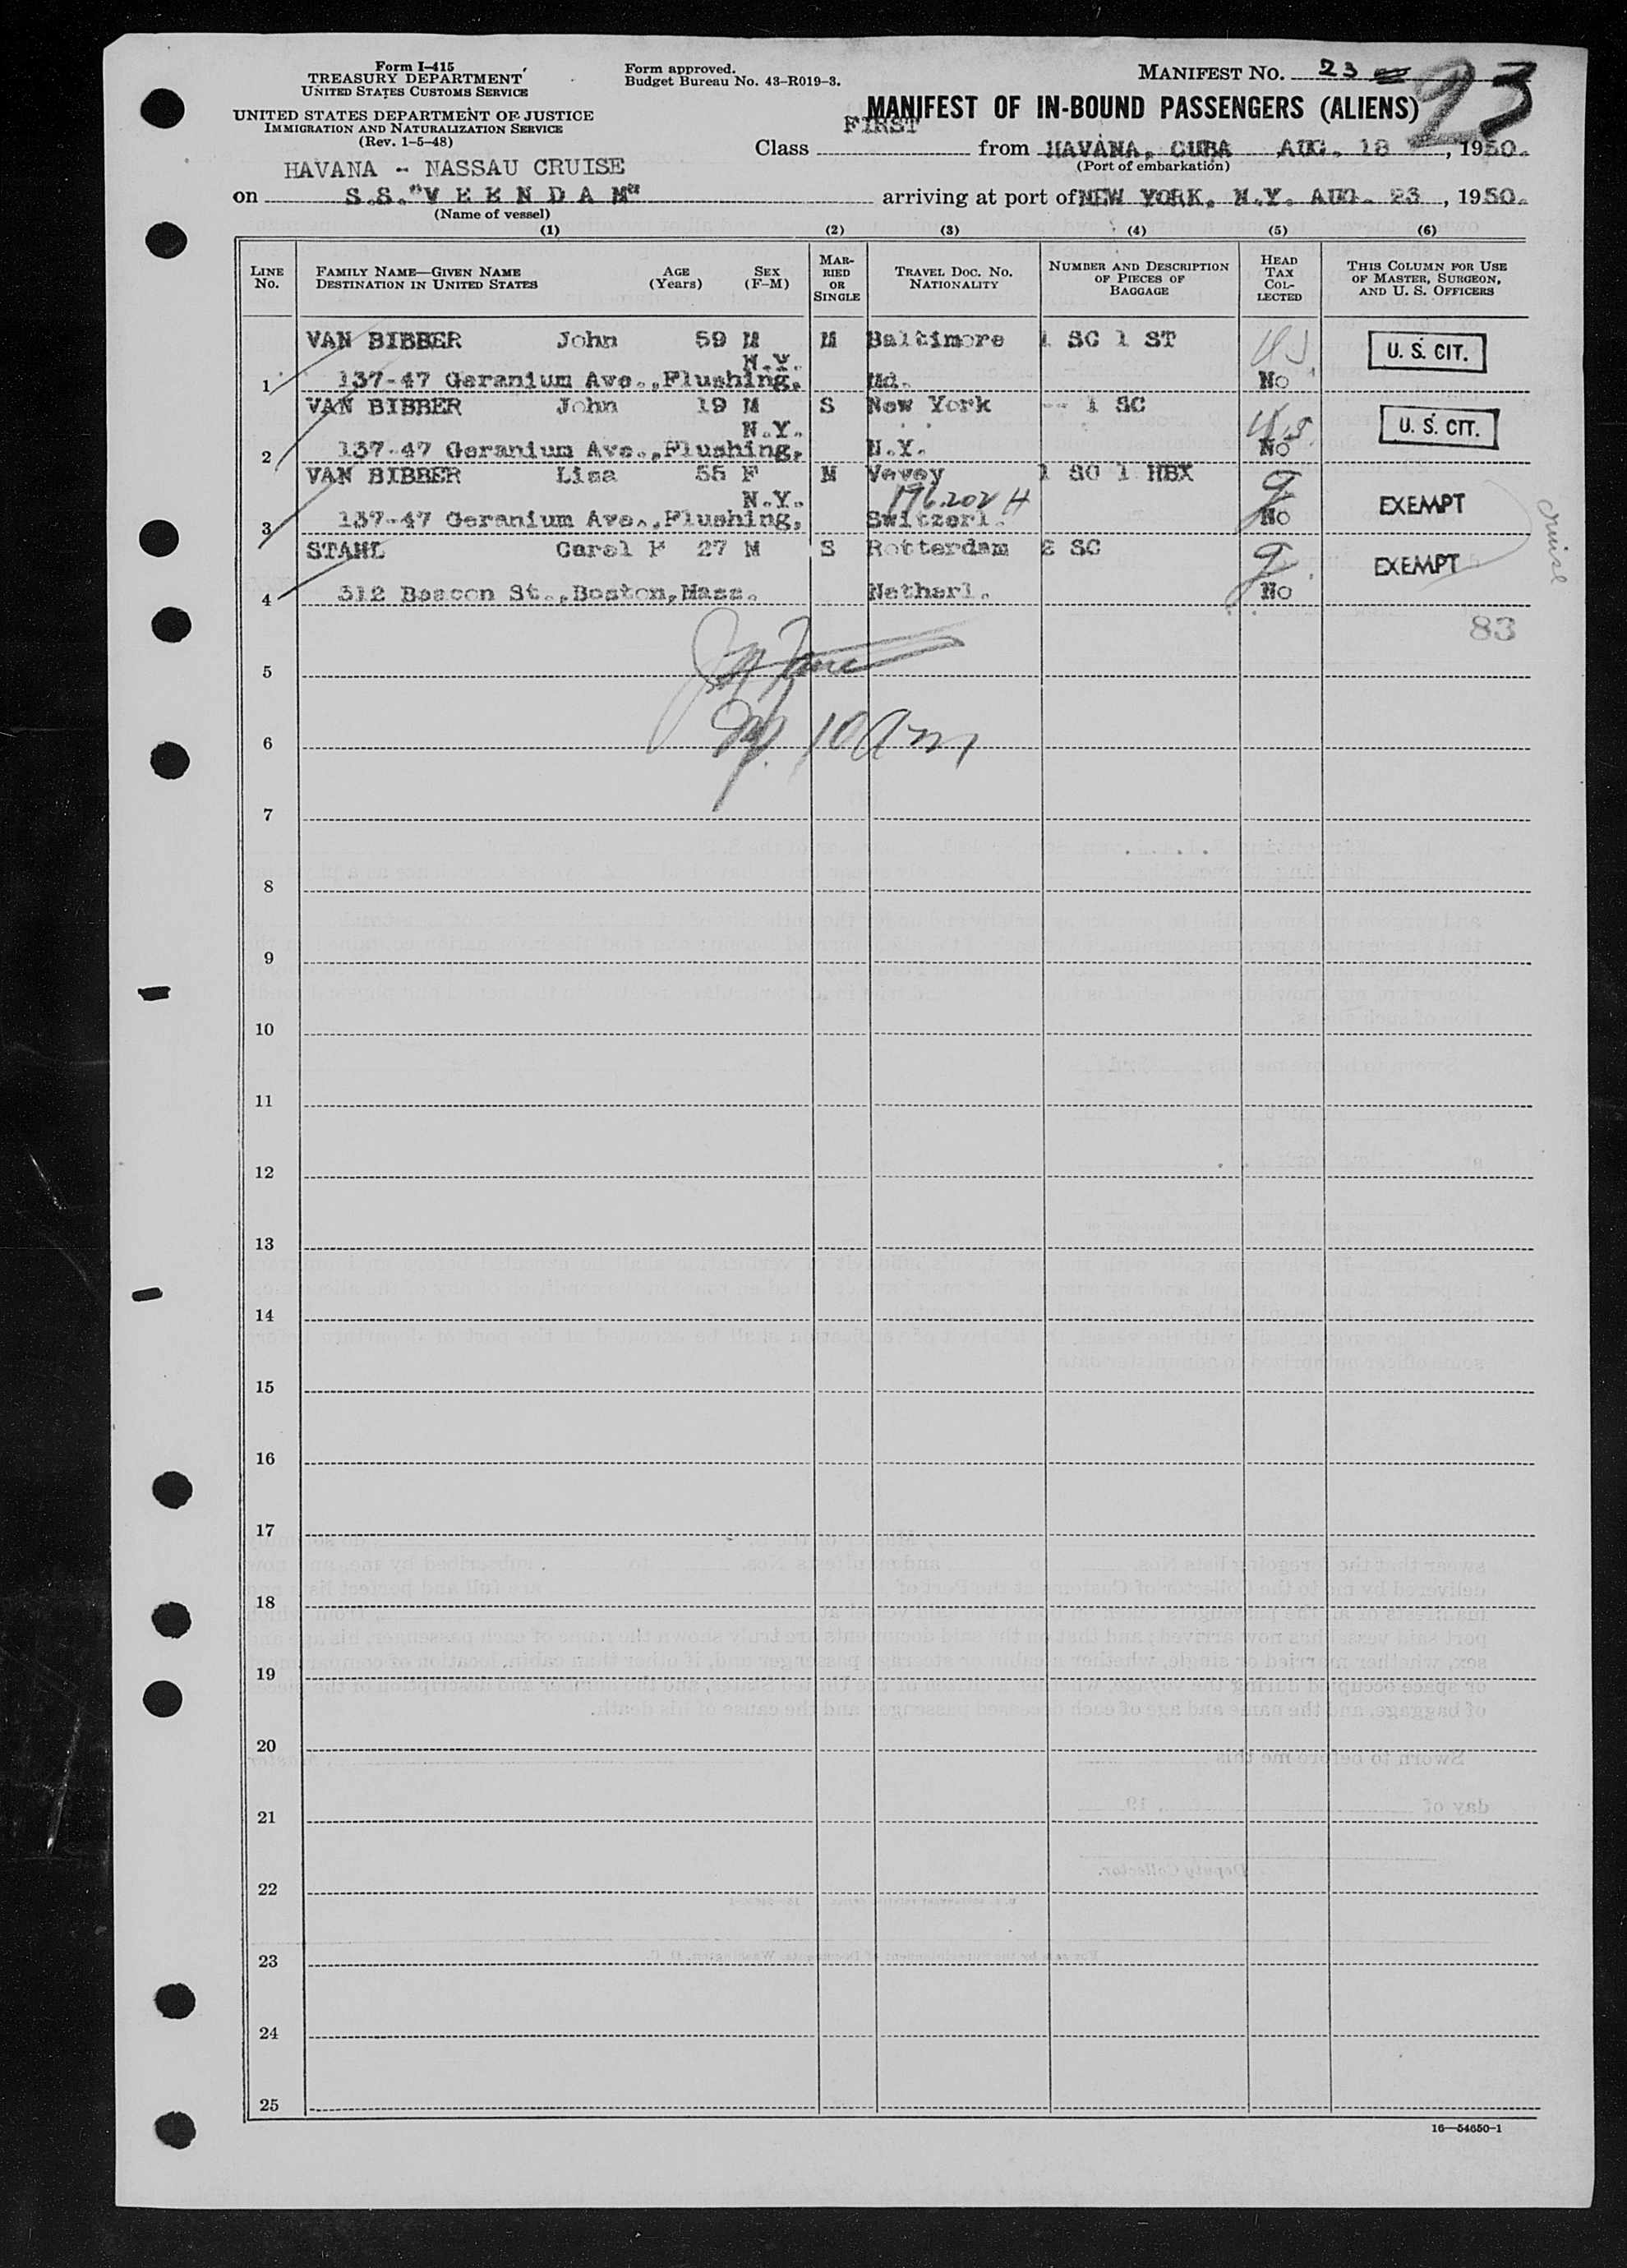 Form I-415
TREASURY DEPARTMENT
UNITED STATES CUSTOMS SERVICE
UNITED STATES DEPARTMENT OF JUSTICE
IMMIGRATION AND NATURALIZATION SERVICE
(Rev. 1-5-48)
Form approved.
Budget Bureau No. 43-R019-3.
MANIFEST NO. 23
23
MANIFEST OF IN-BOUND PASSENGERS (ALIENS)
Class FIRST from HAVANA, CUBA AUG. 18, 1950.
(Port of embarkation)
HAVANA - NASSAU CRUISE
on S.S."V E E N D A M" arriving at port of NEW YORK, N.Y. AUG. 23, 1950.
(Name of vessel)
(1) (2) (3) (4) (5) (6)
LINE No.
FAMILY NAME—GIVEN NAME
DESTINATION IN UNITED STATES
AGE (Years)
SEX (F-M)
MARRIED OR SINGLE
TRAVEL DOC. NO. NATIONALITY
NUMBER AND DESCRIPTION OF PIECES OF BAGGAGE
HEAD TAX COLLECTED
THIS COLUMN FOR USE OF MASTER, SURGEON, AND U. S. OFFICERS
VAN BIBBER John 59 M M Baltimore 1 SC 1 ST US U. S. CIT.
N.Y.
1 137-47 Geranium Ave.,Flushing, Md. No
VAN BIBBER John 19 M S New York -- 1 SC U.S. U. S. CIT.
N.Y.
2 137-47 Geranium Ave.,Flushing, N.Y. No
VAN BIBBER Lisa 55 F M Vevey 1 SC 1 HBX
N.Y. 196202 H EXEMPT cruise
3 137-47 Geranium Ave.,Flushing, Switzerl. No
STAHL Carel F 27 M S Rotterdam 2 SC EXEMPT
4 312 Beacon St.,Boston,Mass. Netherl. No
83
5
6 10 am
7
8
9
10
11
12
13
14
15
16
17
18
19
20
21
22
23
24
25
16—54650-1